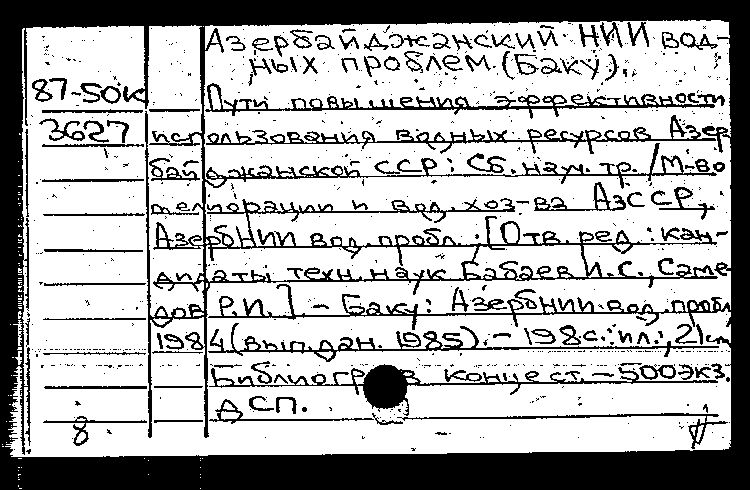 Азербайджанский НИИ вод-
ных проблем (Баку).
87-50к Пути повышения эффективности
3627 использования водных ресурсов Азер
байджанской ССР: Сб. науч. тр. / М-во
мелиорации и вод. хоз-ва АзССР,
АзербНИИ вод. пробл.; [Отв. ред.: кан-
дидаты техн. наук Бабаев И.С., Саме
дов Р.И.] - Баку: АзербНИИ вод. пробл,
1984 (вып. дан. 1985). - 198 с.: ил.; 21 см
Библиогр в конце ст. - 500 экз.
ДСП.
8